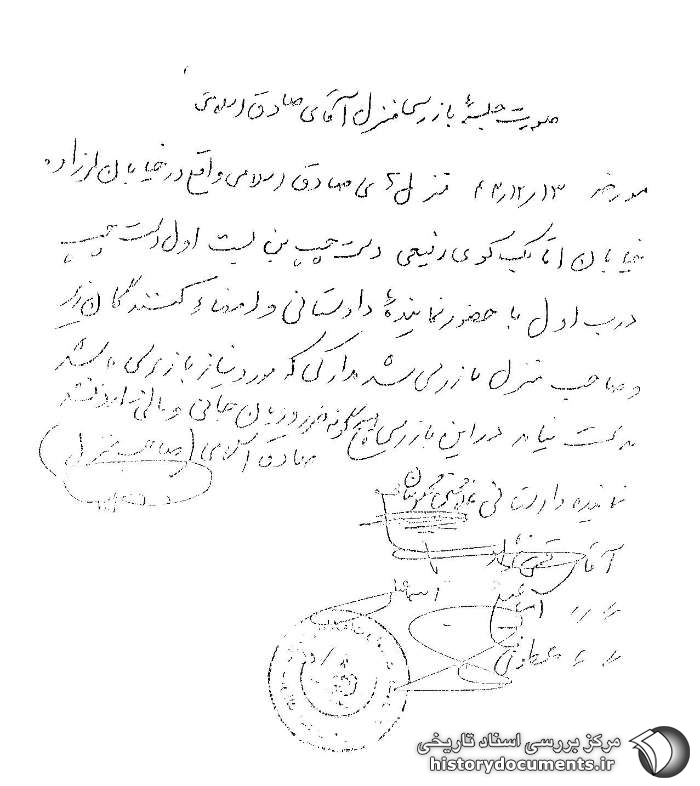 صورت جلسهٔ بازرسی منزل آقای صادق اسلامی
مورخه ۴۳/۱۲/۱۳ منزل آقای صادق اسلامی واقع در خیابان لرزاده
خیابان اتابک کوی رفیعی دست چپ بن بست اول دست چپ
درب اول با حضور نمایندهٔ دادستانی و امضاء کنندگان زیر
و صاحب منزل بازرسی شد مدارکی که مورد نیاز بازپرسی باشد
بدست نیامد در این بازرسی هیچگونه ضرر و زیان جانی و مالی نداشتند
صادق اسلامی (صاحب منزل)
نماینده دادستانی
آقای
〃 〃
〃 〃
مرکز بررسی اسناد تاریخی
historydocuments.ir